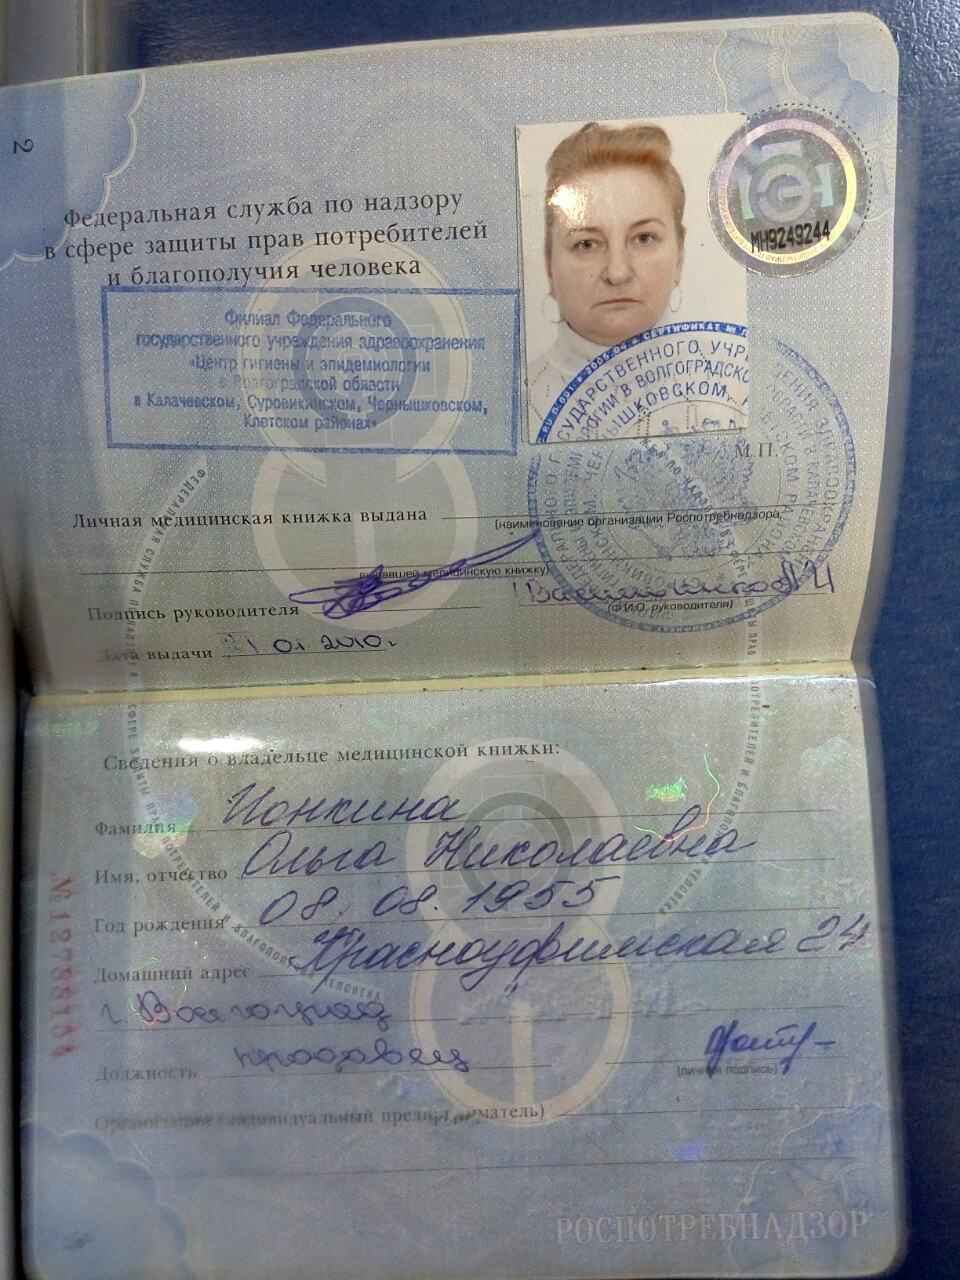 2
Федеральная служба по надзору
в сфере защиты прав потребителей
и благополучия человека
МН9249244
Филиал Федерального
государственного учреждения здравоохранения
«Центр гигиены и эпидемиологии
в Волгоградской области
в Калачевском, Суровикинском, Чернышковском,
Клетском районах»
М.П.
Личная медицинская книжка выдана
(наименование организации Роспотребнадзора,
выдавшей медицинскую книжку)
Подпись руководителя
(Ф.И.О. руководителя)
Дата выдачи 01. 2010г
Сведения о владельце медицинской книжки:
Фамилия Ионкина
Имя, отчество Ольга Николаевна
Год рождения 08. 08. 1955
Домашний адрес Красноуфимская 24
г. Волгоград
Должность продавец
(личная подпись)
Организация (индивидуальный предприниматель)
РОСПОТРЕБНАДЗОР